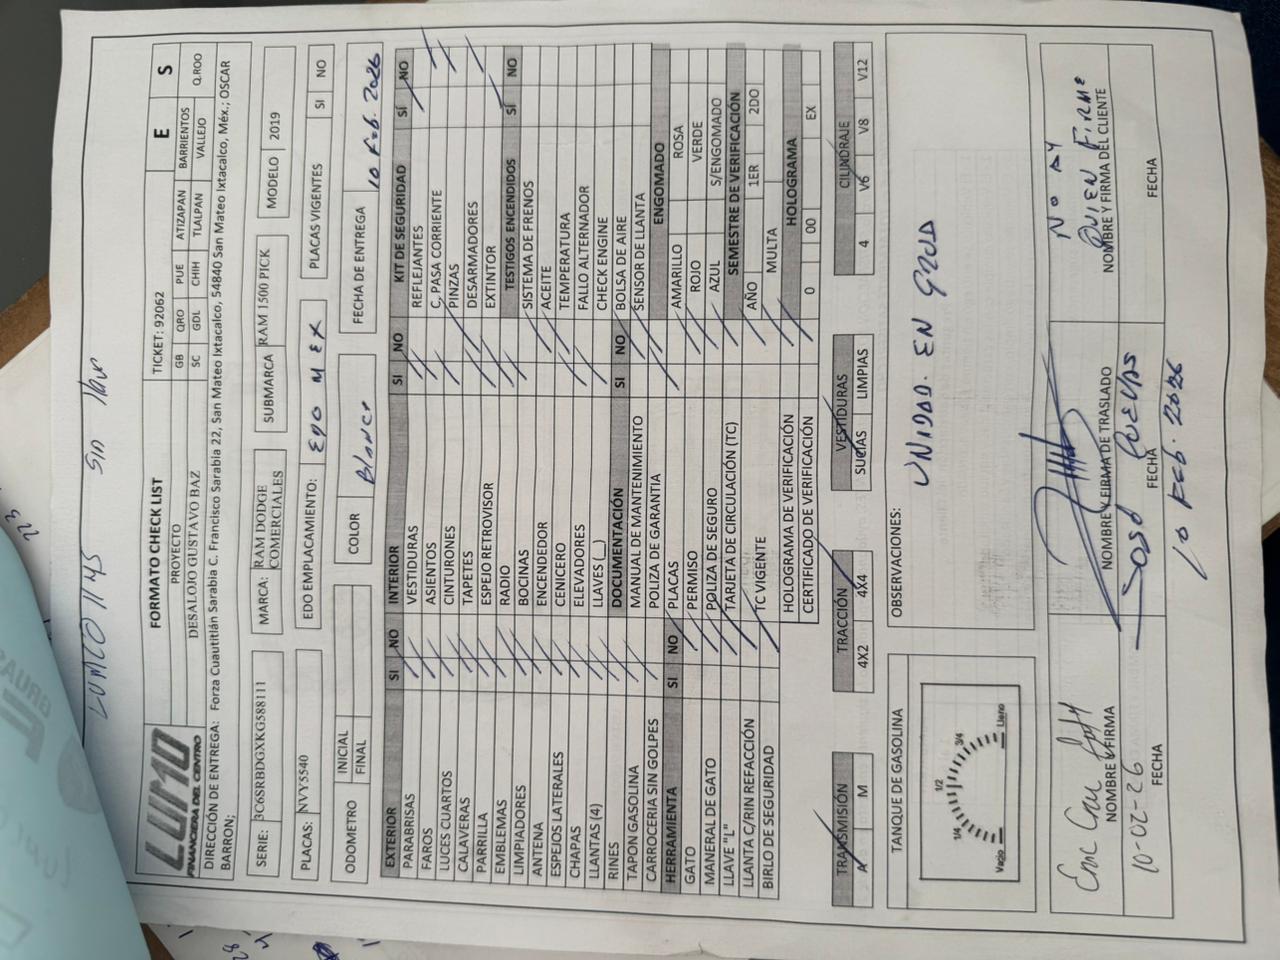 LUMCO11145 sin llave
LUMO
FINANCIERA DEL CENTRO
FORMATO CHECK LIST
TICKET: 92062 E S
PROYECTO GB QRO PUE ATIZAPAN BARRIENTOS
DESALOJO GUSTAVO BAZ SC GDL CHIH TLALPAN VALLEJO Q.ROO
DIRECCIÓN DE ENTREGA: Forza Cuautitlán Sarabia C. Francisco Sarabia 22, San Mateo Ixtacalco, 54840 San Mateo Ixtacalco, Méx.; OSCAR
BARRON;
SERIE: 3C6SRBDGXKG588111 MARCA: RAM DODGE COMERCIALES SUBMARCA RAM 1500 PICK MODELO 2019
PLACAS: NVY5540 EDO EMPLACAMIENTO: EDO MEX PLACAS VIGENTES SI NO
ODOMETRO INICIAL COLOR Blanco FECHA DE ENTREGA 10 Feb. 2026
FINAL
EXTERIOR SI NO
PARABRISAS
FAROS
LUCES CUARTOS
CALAVERAS
PARRILLA
EMBLEMAS
LIMPIADORES
ANTENA
ESPEJOS LATERALES
CHAPAS
LLANTAS (4)
RINES
TAPON GASOLINA
CARROCERIA SIN GOLPES
HERRAMIENTA SI NO
GATO
MANERAL DE GATO
LLAVE "L"
LLANTA C/RIN REFACCIÓN
BIRLO DE SEGURIDAD
INTERIOR SI NO
VESTIDURAS
ASIENTOS
CINTURONES
TAPETES
ESPEJO RETROVISOR
RADIO
BOCINAS
ENCENDEDOR
CENICERO
ELEVADORES
LLAVES (__)
DOCUMENTACIÓN SI NO
MANUAL DE MANTENIMIENTO
POLIZA DE GARANTIA
PLACAS
PERMISO
POLIZA DE SEGURO
TARJETA DE CIRCULACIÓN (TC)
TC VIGENTE
HOLOGRAMA DE VERIFICACIÓN
CERTIFICADO DE VERIFICACIÓN
KIT DE SEGURIDAD SÍ NO
REFLEJANTES
C, PASA CORRIENTE
PINZAS
DESARMADORES
EXTINTOR
TESTIGOS ENCENDIDOS SÍ NO
SISTEMA DE FRENOS
ACEITE
TEMPERATURA
FALLO ALTERNADOR
CHECK ENGINE
BOLSA DE AIRE
SENSOR DE LLANTA
ENGOMADO
AMARILLO ROSA
ROJO VERDE
AZUL S/ENGOMADO
SEMESTRE DE VERIFICACIÓN
AÑO 1ER 2DO
MULTA
HOLOGRAMA
0 00 EX
TRANSMISIÓN TRACCIÓN VESTIDURAS CILINDRAJE
A M 4X2 4X4 SUCIAS LIMPIAS 4 V6 V8 V12
TANQUE DE GASOLINA
Vacío 1/4 1/2 3/4 Lleno
OBSERVACIONES:
UNIDAD. EN GRUA
NOMBRE Y FIRMA
10-02-26
FECHA
NOMBRE Y FIRMA DE TRASLADO
José Cuevas
FECHA
10 Feb. 2026
No AY
QUIEN FIRME
NOMBRE Y FIRMA DEL CLIENTE
FECHA